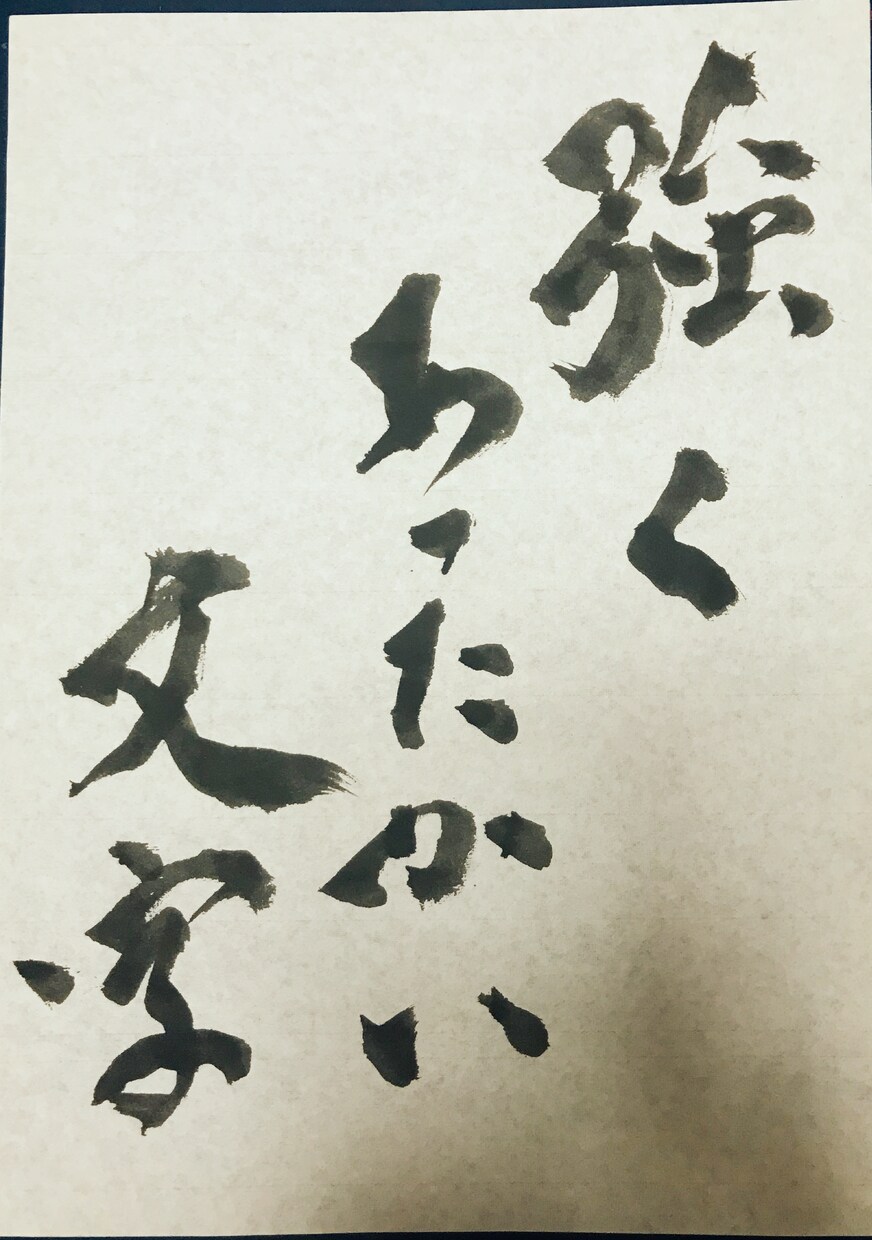 強く
あったかい
文字